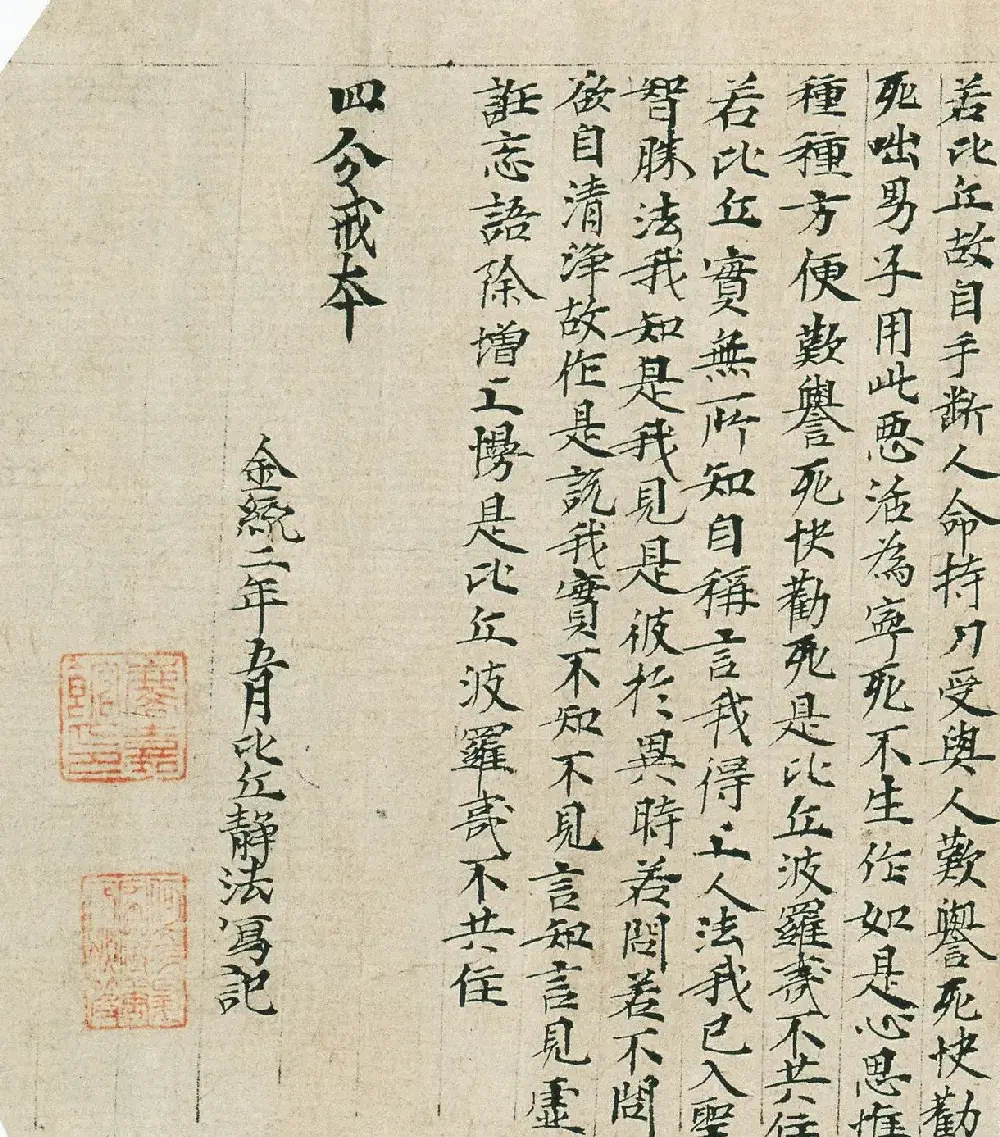 若比丘故自手断人命持刀受與人歎譽死快勸
死咄男子用此恶活為寧死不生作如是心思惟
種種方便歎譽死快勸死是比丘波羅夷不共住
若比丘實無所知自稱言我得上人法我已入聖
智勝法我知是我見是彼於異時若問若不問
欲自清淨故作是說我實不知不見言知言見虛
誑妄語除增上慢是比丘波羅夷不共住
四分戒本
金統二年五月比丘静法寫記